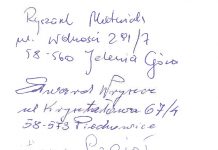 Ryszard
ul. Wolności 291/7
58-560 Jelenia Góra
Edward
ul Kryształowa 67/4
58-573 Piechowice